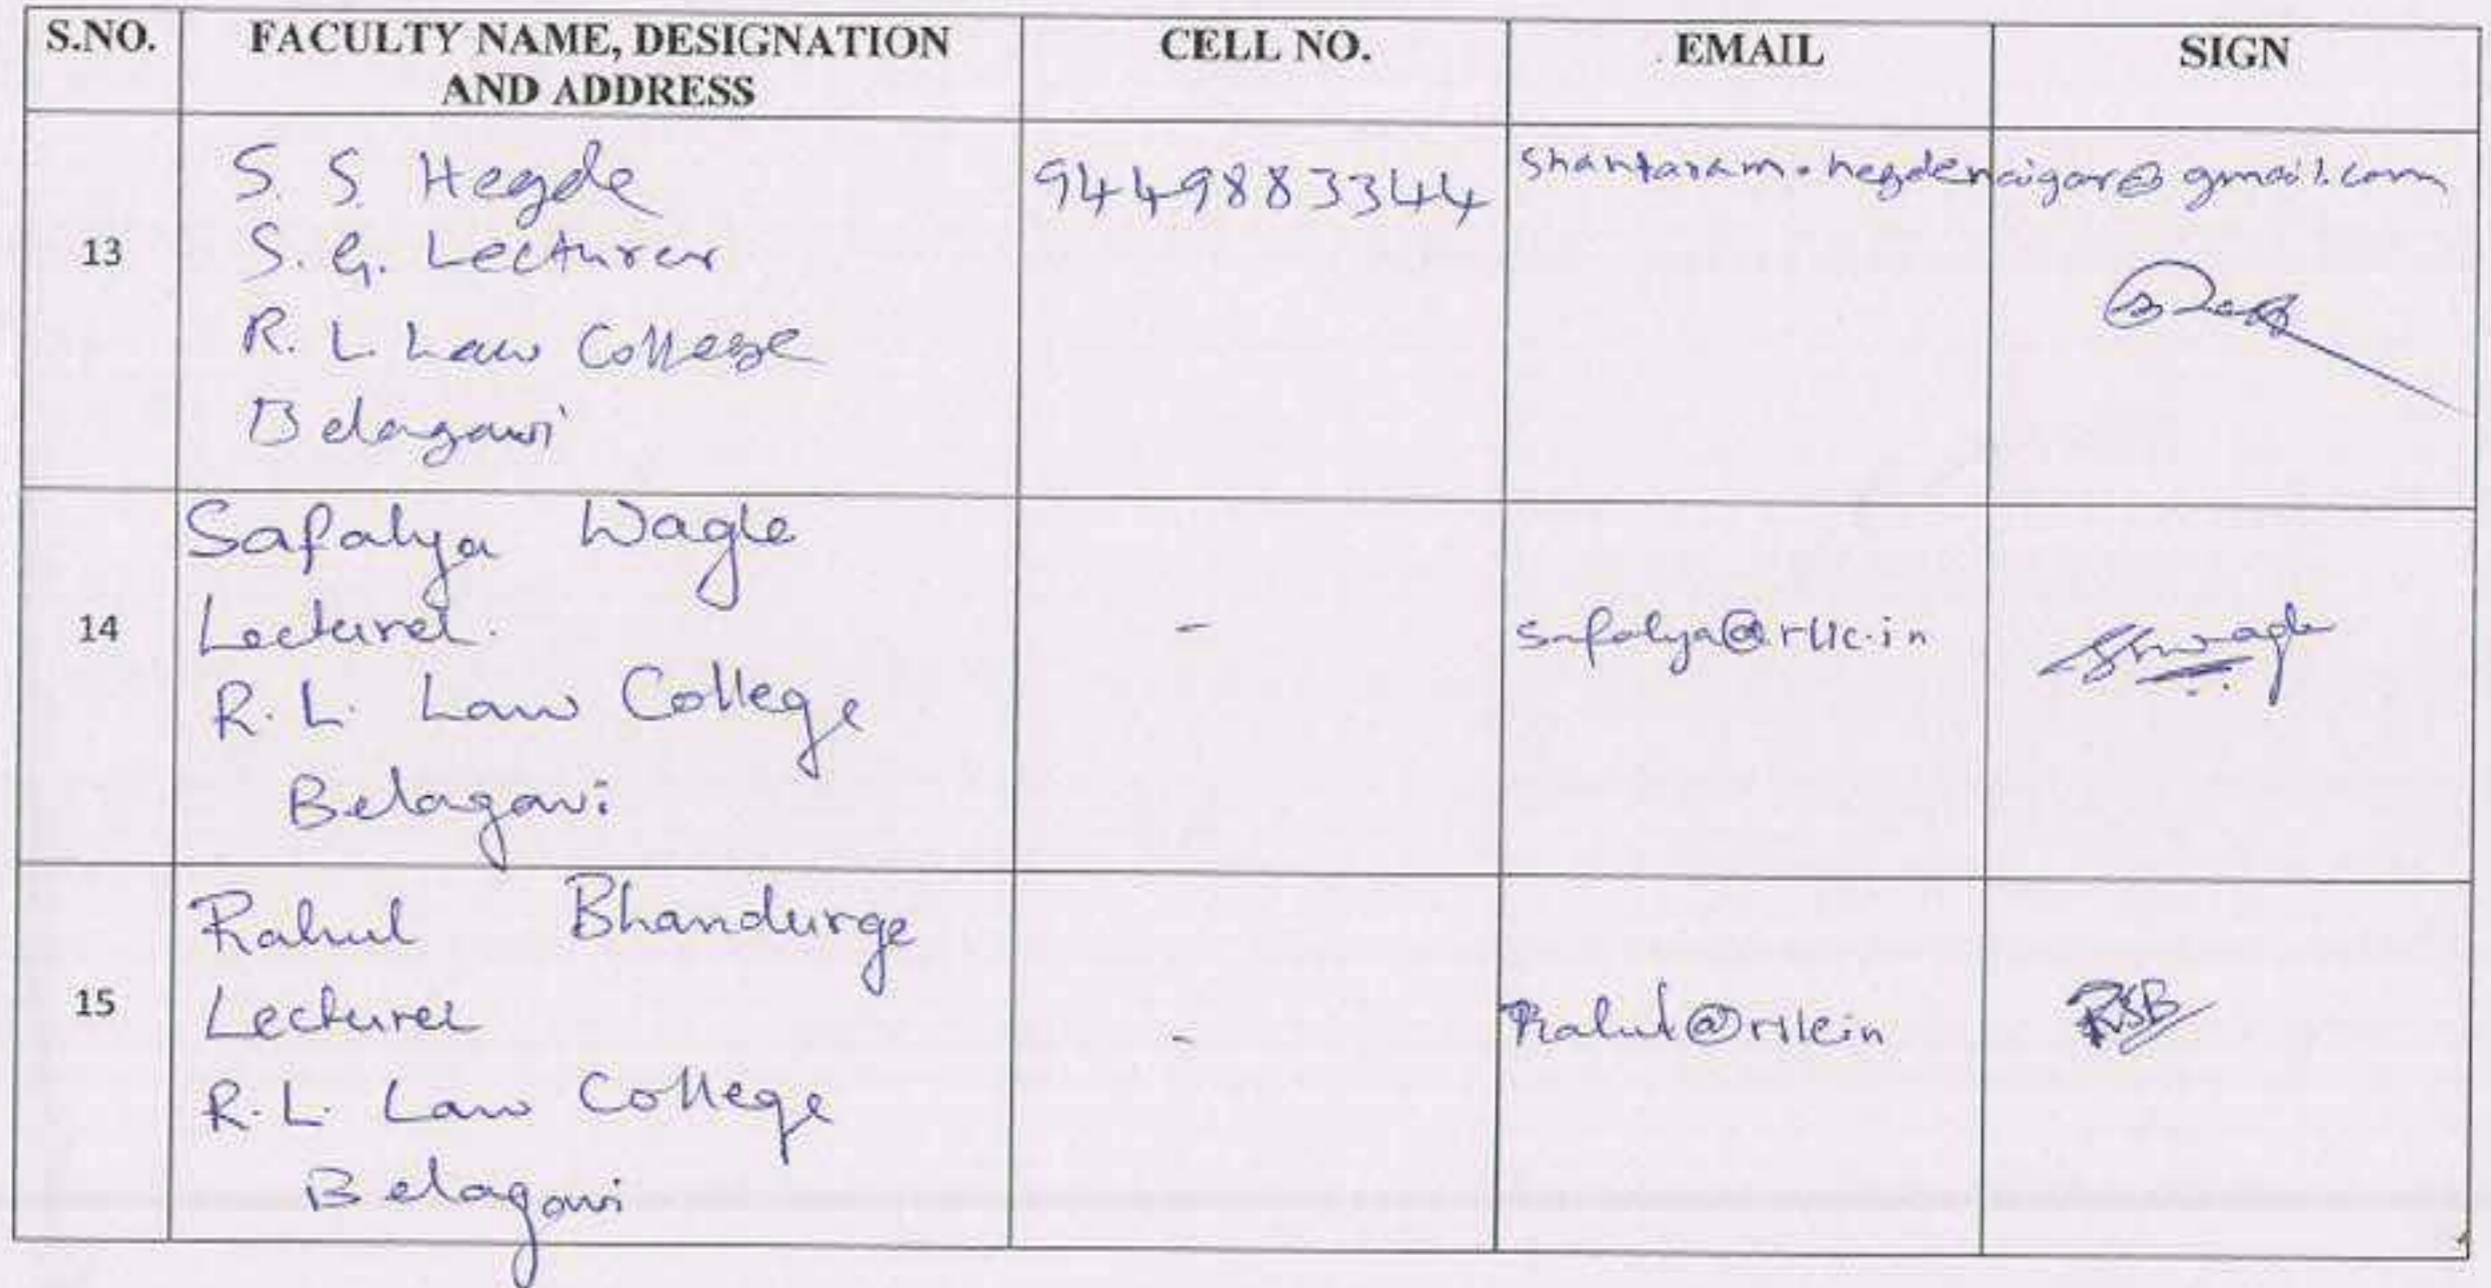 S.NO. FACULTY NAME, DESIGNATION AND ADDRESS CELL NO. EMAIL SIGN
13
S. S. Hegde
S. G. Lecturer
R. L. Law College
Belagavi
9449883344
shantaram.hegdenaigar@gmail.com
14
Safalya Wagle
Lecturer.
R. L. Law College
Belagavi
-
safalya@rllc.in
15
Rahul Bhandurge
Lecturer
R. L. Law College
Belagavi
-
Rahul@rllc.in
RSB